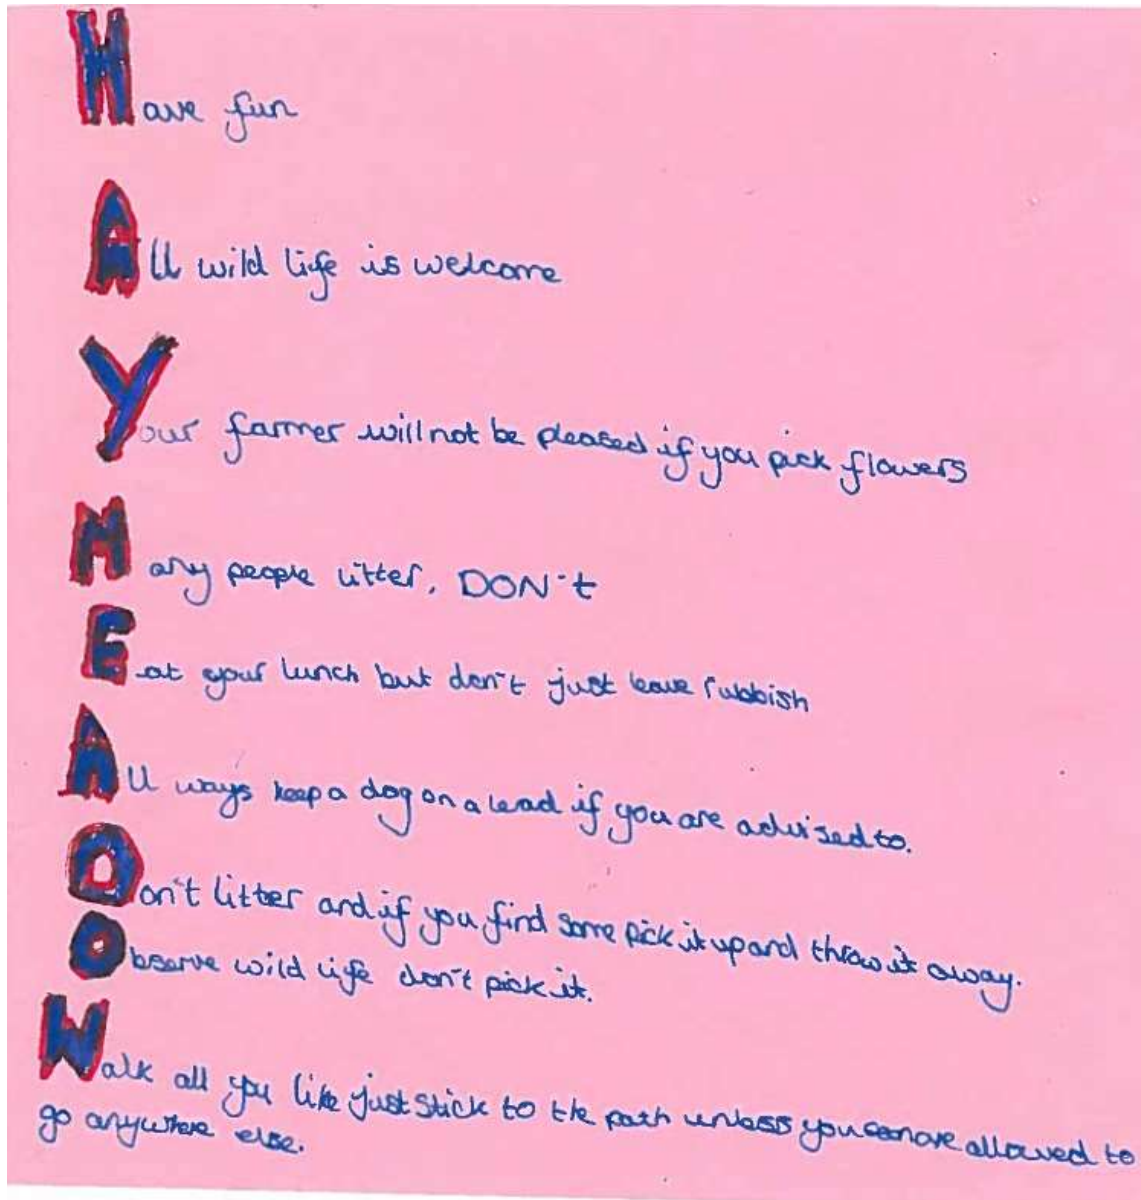 Have fun
All wild life is welcome
Your farmer will not be pleased if you pick flowers
Many people litter. DON't
Eat your lunch but don't just leave rubbish
All ways keep a dog on a lead if you are advised to.
Don't litter and if you find some pick it up and throw it away.
Observe wild life don't pick it.
Walk all you like just stick to the path unless you are allowed to
go anywhere else.